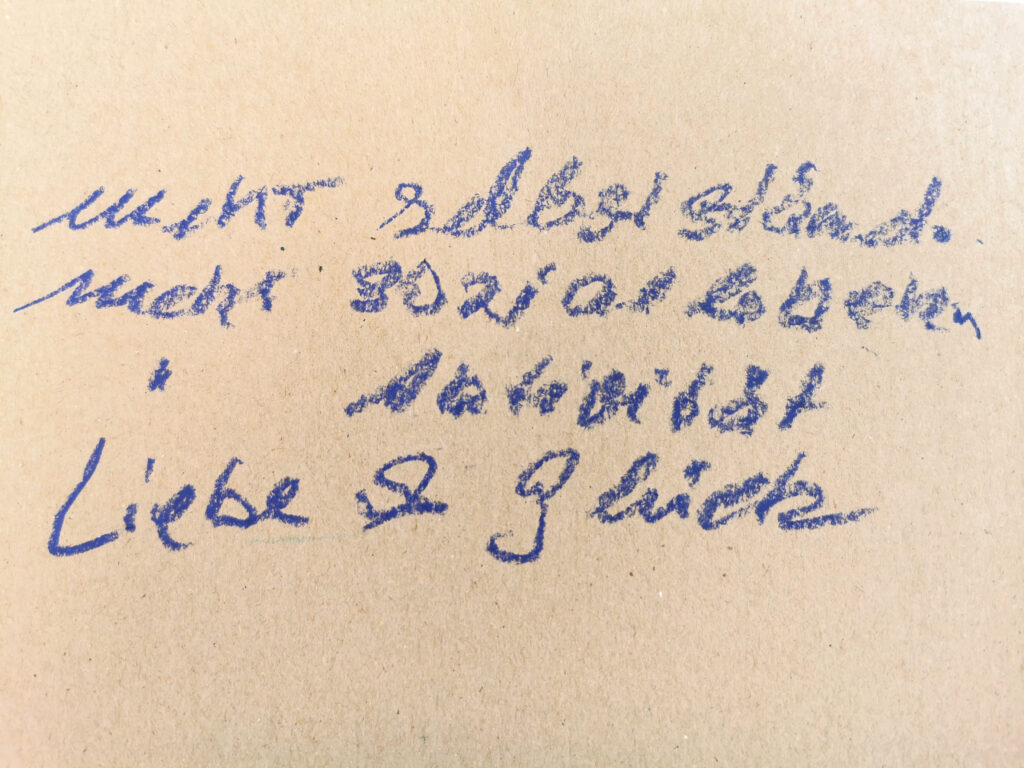 mehr selbstständ.
mehr sozialleben
" Aktivität
Liebe & Glück